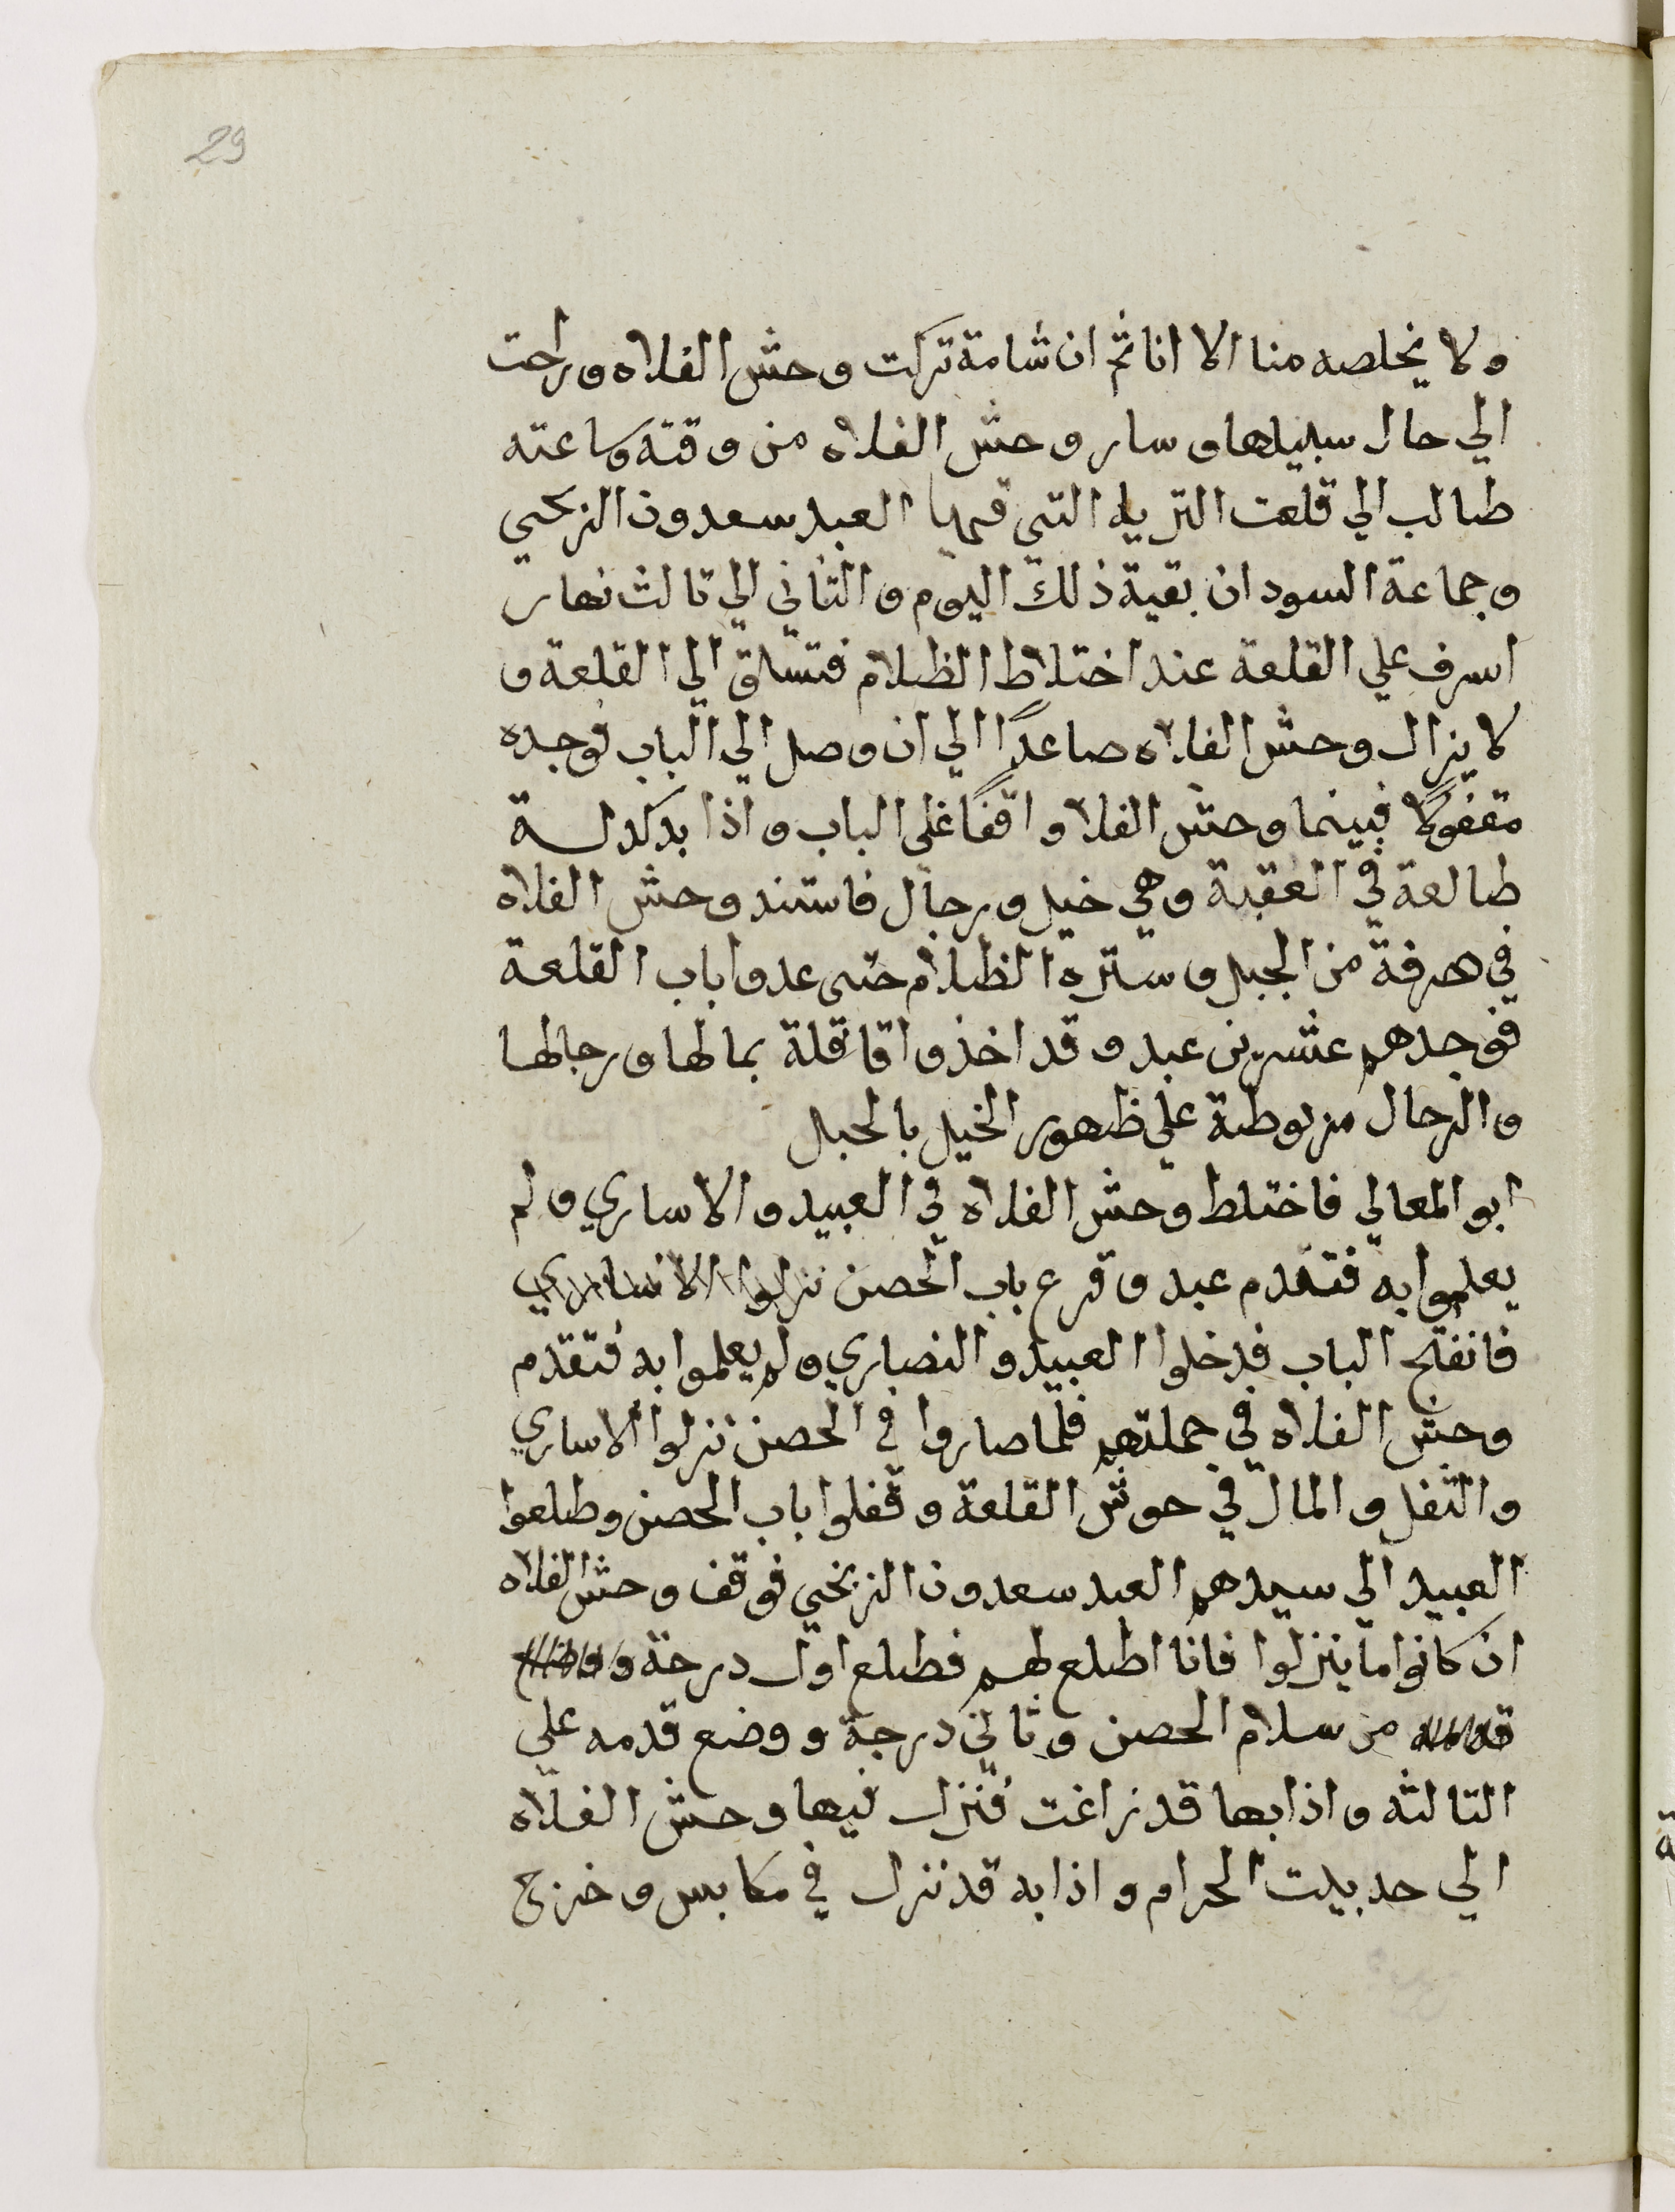 29
ولا يخلصه منا الا انا ثم ان شامة تركت وحش الفلاه وراحت
الي حال سبيلها وسار وحش الفلاه من وقته وساعته
طالب الي قلعت التريا التي فيها العبد سعدون الزنجي
وجماعة السودان بقية ذلك اليوم والثاني الي تالث نهار
اسرف علي القلعة عند اختلاط الظلام فتسلق الي القلعة و
لا يزال وحش الفلاه صاعدًا الي ان وصل الي الباب فوجده
مقفولًا فبينما وحش الفلا واقفًا علي الباب واذا بدكدلة
طالعة في العقبة وهي خيل ورجال فاستند وحش الفلاه
في هرفة من الجبل وستره الظلام حتى عدوا باب القلعة
فوجدهم عشرين عبد وقد اخذوا قافلة بمالها ورجالها
والرجال مربوطة علي ظهور الخيل بالحبل
ابو المعالي فاختلط وحش الفلاه في العبيد والاساري ولم
يعلموا به فتقدم عبد وقرع باب الحصن نزلوا الاساري
فانفتح الباب فدخلوا العبيد والنصاري ولم يعلموا به فتقدم
وحش الفلاه في جملتهم فلما صاروا في الحصن نزلوا الاساري
والثفل والمال في حوش القلعة وقفلوا باب الحصن وطلعوا
العبيد الي سيدهم العبد سعدون الزنجي فوقف وحش الفلاه
ان كانوا ما ينزلوا فانا اطلع لهم فطلع اول درجة و
من سلام الحصن وثاني درجة ووضع قدمه علي
التالثه واذا بها قد زاغت فنزل فيها وحش الفلاه
الي حد بيت الحرام واذا به قد نزل في مكابس وخرج